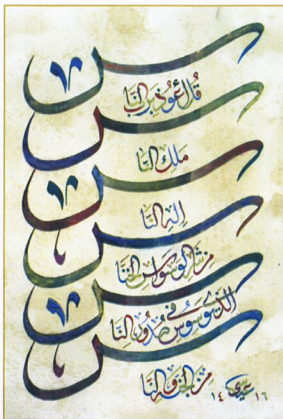 قل أعوذ برب الناس
ملك الناس
إله الناس
من شر الوسواس الخناس
الذي يوسوس في صدور الناس
من الجنة والناس
١٤ ١٦